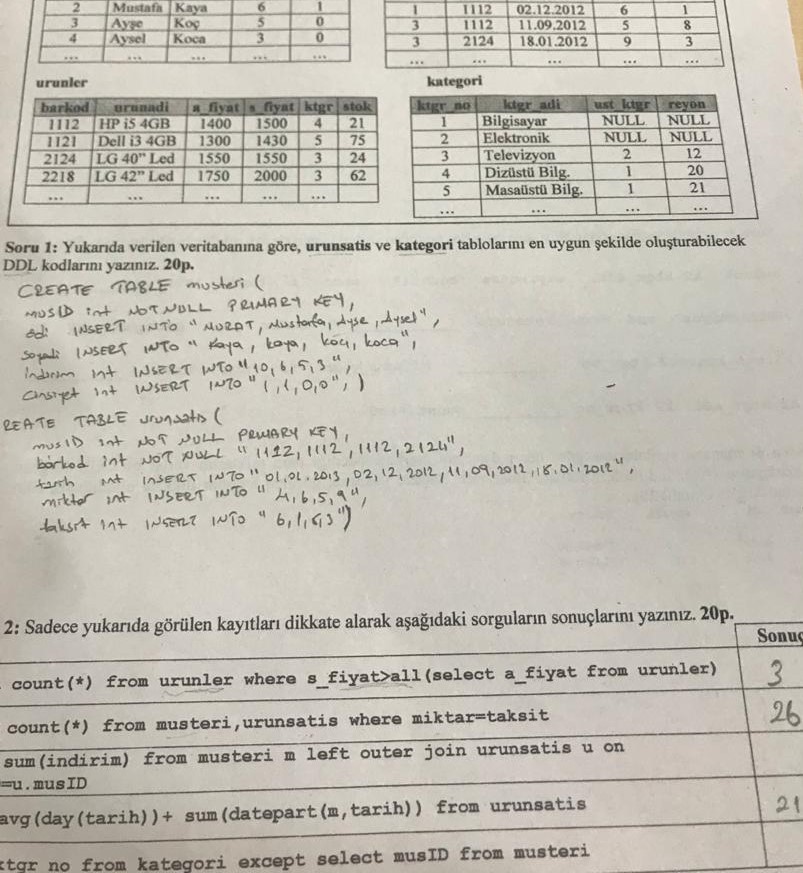 2 Mustafa Kaya 6 1
3 Ayşe Koç 5 0
4 Aysel Koca 3 0
... ... ... ... ...
1 1112 02.12.2012 6 1
3 1112 11.09.2012 5 8
3 2124 18.01.2012 9 3
... ... ... ... ...
urunler
barkod urunadi a_fiyat s_fiyat ktgr stok
1112 HP i5 4GB 1400 1500 4 21
1121 Dell i3 4GB 1300 1430 5 75
2124 LG 40" Led 1550 1550 3 24
2218 LG 42" Led 1750 2000 3 62
... ... ... ... ...
kategori
ktgr_no ktgr_adi ust_ktgr reyon
1 Bilgisayar NULL NULL
2 Elektronik NULL NULL
3 Televizyon 2 12
4 Dizüstü Bilg. 1 20
5 Masaüstü Bilg. 1 21
... ... ... ...
Soru 1: Yukarıda verilen veritabanına göre, urunsatis ve kategori tablolarını en uygun şekilde oluşturabilecek
DDL kodlarını yazınız. 20p.
CREATE TABLE musteri (
musID int NOT NULL PRIMARY KEY,
adi INSERT INTO "MURAT, Mustafa, Ayse, Aysel",
Soyadi INSERT INTO "Kaya, kaya, koç, koca",
indirim int INSERT INTO "10,6,5,3",
Cinsiyet int INSERT INTO "1,1,0,0",)
REATE TABLE urunsatis (
musID int NOT NULL PRIMARY KEY,
barkod int NOT NULL "1122, 1112, 1112, 2124",
tarih int INSERT INTO "01.01.2013, 02,12,2012, 11,09,2012, 18.01.2012",
miktar int INSERT INTO "4,6,5,9",
taksit int INSERT INTO "6,1,8,3")
2: Sadece yukarıda görülen kayıtları dikkate alarak aşağıdaki sorguların sonuçlarını yazınız. 20p.
Sonuç
count(*) from urunler where s_fiyat>all(select a_fiyat from urunler) 3
count(*) from musteri,urunsatis where miktar=taksit 26
sum(indirim) from musteri m left outer join urunsatis u on
=u.musID
avg(day(tarih))+ sum(datepart(m,tarih)) from urunsatis 21
ktgr no from kategori except select musID from musteri